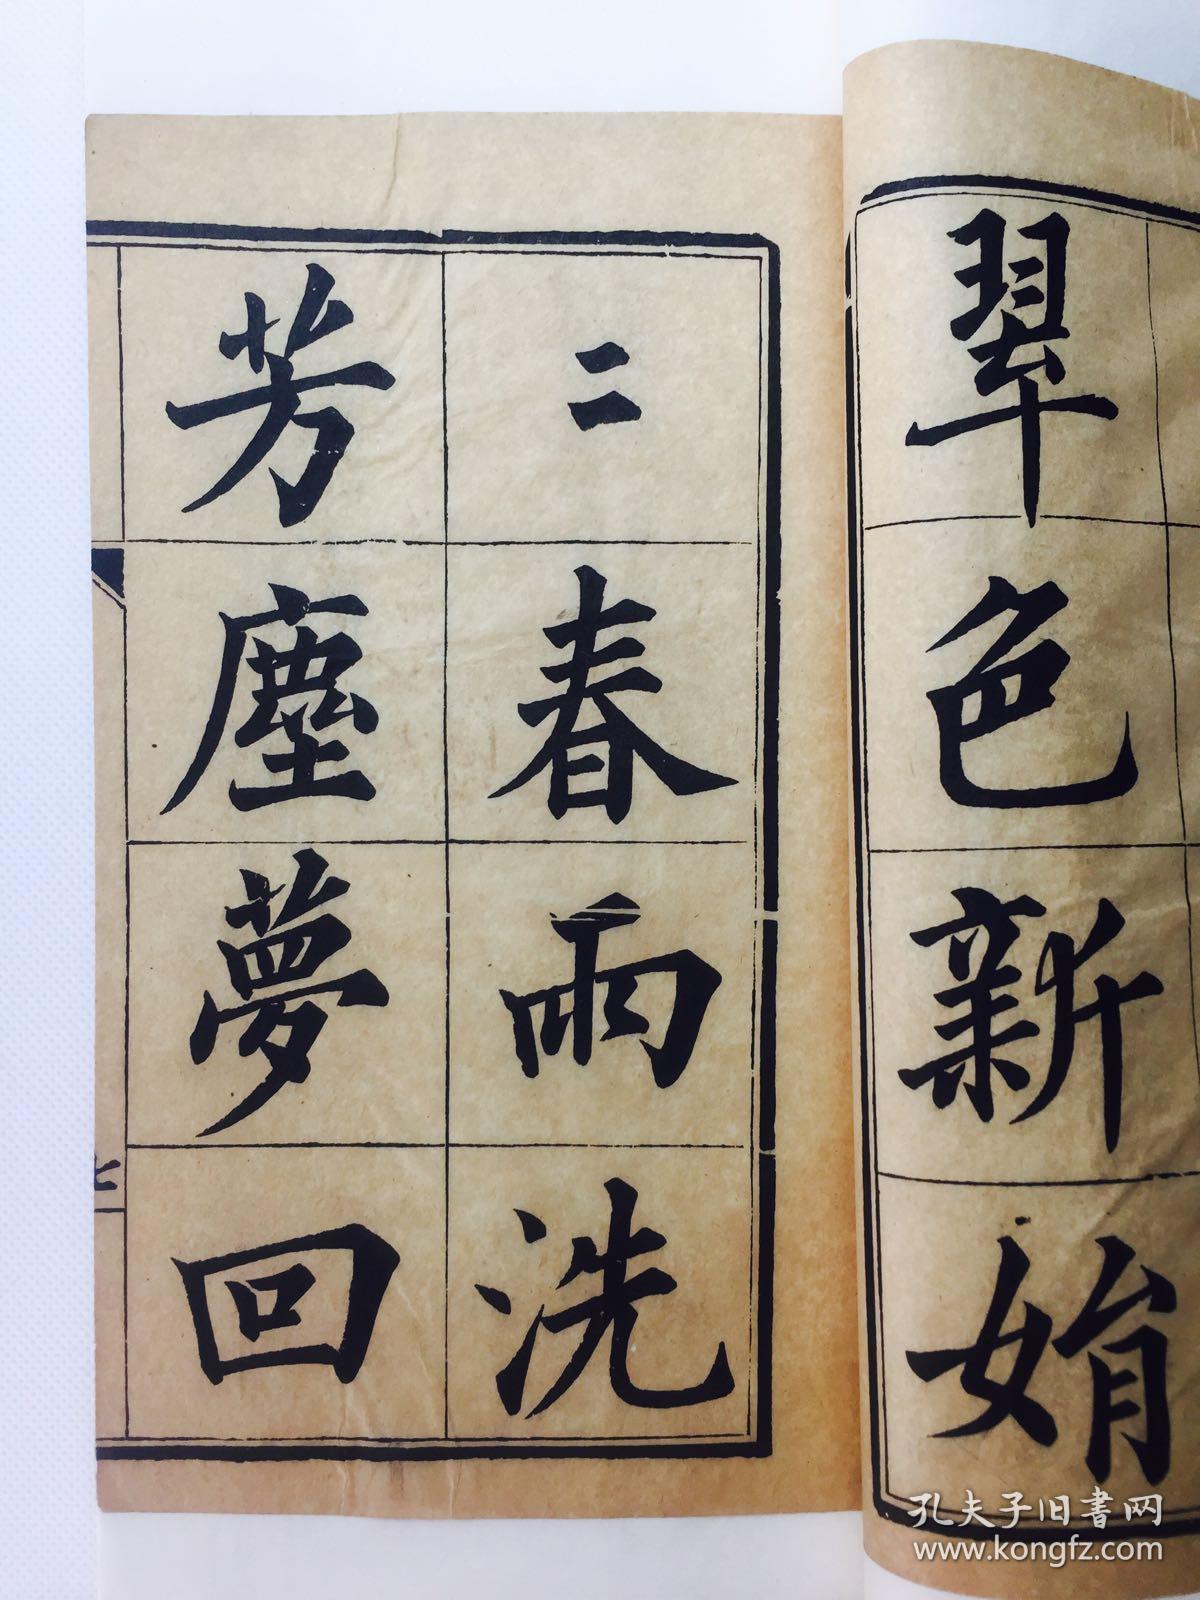 翠色新娟
〻春雨洗
芳塵夢回
七
孔夫子旧書网
www.kongfz.com